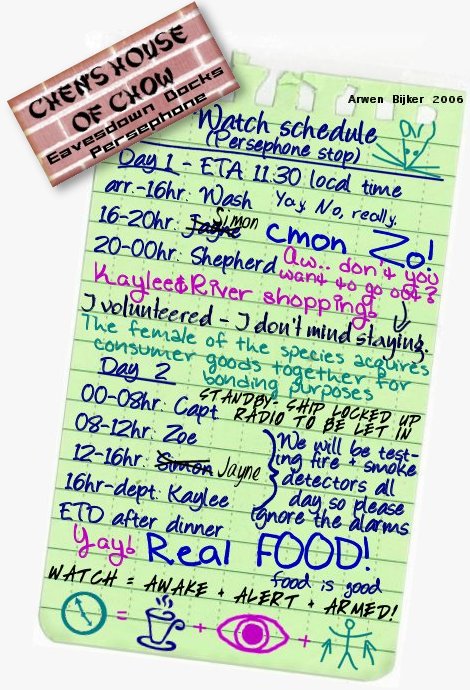 CHEN'S HOUSE
OF CHOW
Eavesdown Docks
Persephone
Arwen Bijker 2006
Watch schedule
(Persephone stop)
Day 1 - ETA 11:30 local time
arr.-16hr: Wash
Yay. No, really.
16-20hr: Jayne Simon
cmon Zo!
20-00hr: Shepherd
Aw.. don't you
want to go out?
Kaylee&River shopping!
I volunteered - I don't mind staying.
The female of the species acquires
consumer goods together for
bonding purposes
Day 2
STANDBY: SHIP LOCKED UP
RADIO TO BE LET IN
00-08hr: Capt
08-12hr: Zoe
12-16hr: Simon Jayne
16hr-dept: Kaylee
We will be test-
ing fire + smoke
detectors all
day so please
ignore the alarms
ETD after dinner
Yay! Real FOOD!
food is good
WATCH = AWAKE + ALERT + ARMED!
= + +